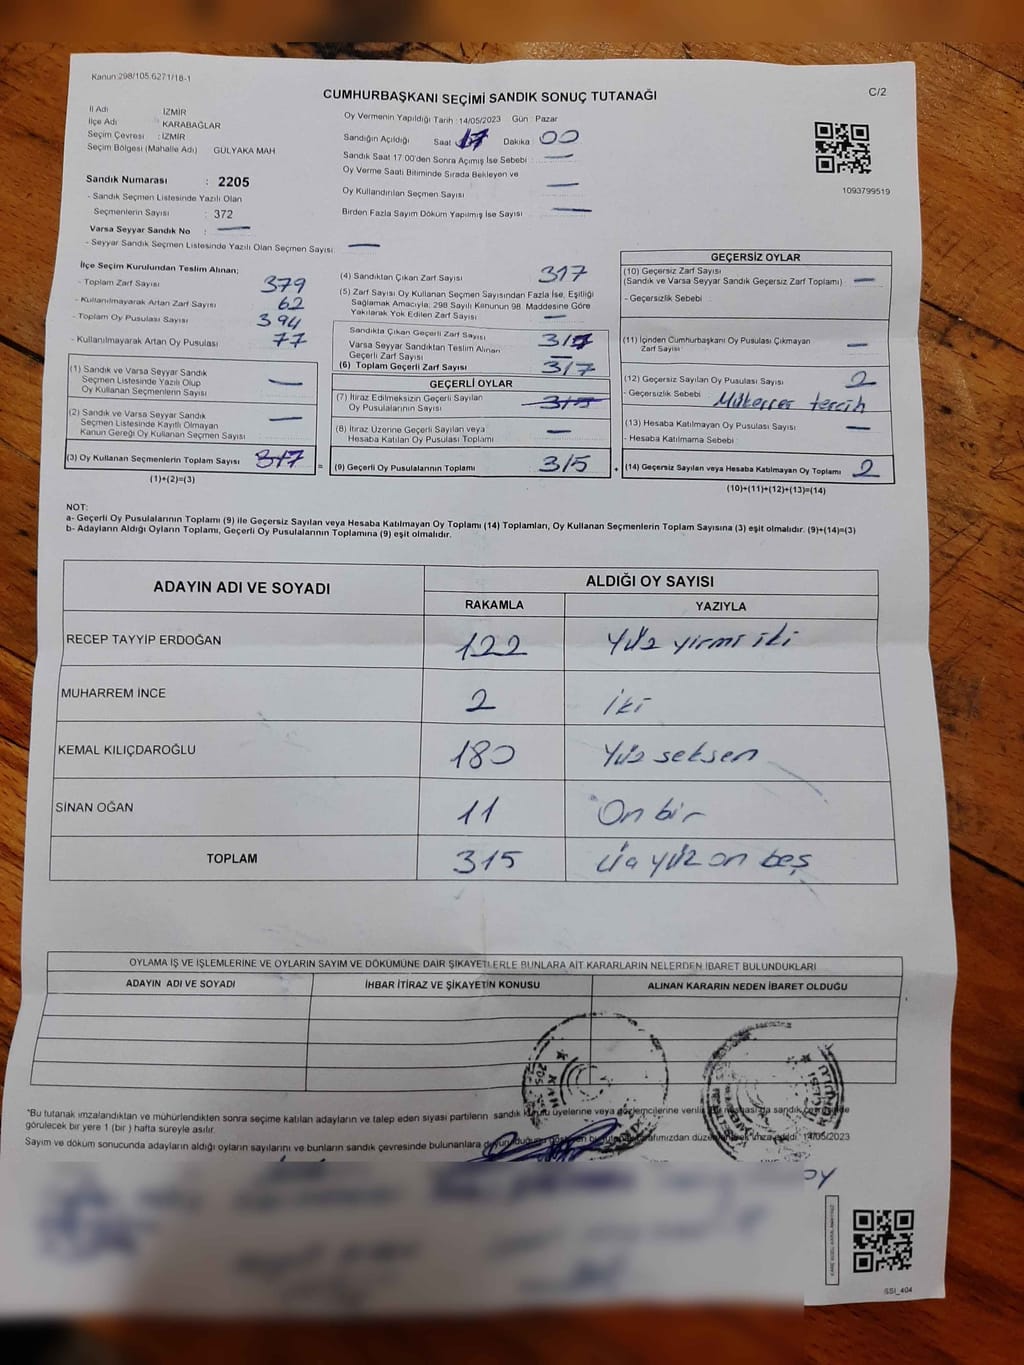 Kanun:298/105.6271/18-1
CUMHURBAŞKANI SEÇİMİ SANDIK SONUÇ TUTANAĞI
C/2
İl Adı : İZMİR
İlçe Adı : KARABAĞLAR
Seçim Çevresi : İZMİR
Seçim Bölgesi (Mahalle Adı) GÜLYAKA MAH
Sandık Numarası : 2205
- Sandık Seçmen Listesinde Yazılı Olan
Seçmenlerin Sayısı : 372
Varsa Seyyar Sandık No : —
- Seyyar Sandık Seçmen Listesinde Yazılı Olan Seçmen Sayısı: —
Oy Vermenin Yapıldığı Tarih :14/05/2023 Gün : Pazar
Sandığın Açıldığı Saat 17 Dakika : 00
Sandık Saat 17:00'den Sonra Açımış İse Sebebi : —
Oy Verme Saati Bitiminde Sırada Bekleyen ve
Oy Kullandırılan Seçmen Sayısı —
Birden Fazla Sayım Döküm Yapılmış İse Sayısı : —
1093799519
İlçe Seçim Kurulundan Teslim Alınan;
- Toplam Zarf Sayısı : 379
- Kullanılmayarak Artan Zarf Sayısı : 62
- Toplam Oy Pusulası Sayısı : 394
- Kullanılmayarak Artan Oy Pusulası : 77
(1) Sandık ve Varsa Seyyar Sandık
Seçmen Listesinde Yazılı Olup
Oy Kullanan Seçmenlerin Sayısı : —
(2) Sandık ve Varsa Seyyar Sandık
Seçmen Listesinde Kayıtlı Olmayan
Kanun Gereği Oy Kullanan Seçmen Sayısı : —
(3) Oy Kullanan Seçmenlerin Toplam Sayısı : 317
(1)+(2)=(3)
(4) Sandıktan Çıkan Zarf Sayısı : 317
(5) Zarf Sayısı Oy Kullanan Seçmen Sayısından Fazla İse, Eşitliği
Sağlamak Amacıyla; 298 Sayılı Kanunun 98. Maddesine Göre
Yakılarak Yok Edilen Zarf Sayısı : —
Sandıkta Çıkan Geçerli Zarf Sayısı : 317
Varsa Seyyar Sandıktan Teslim Alınan
Geçerli Zarf Sayısı : —
(6) Toplam Geçerli Zarf Sayısı : 317
GEÇERLİ OYLAR
(7) İtiraz Edilmeksizin Geçerli Sayılan
Oy Pusulalarının Sayısı : 315
(8) İtiraz Üzerine Geçerli Sayılan veya
Hesaba Katılan Oy Pusulası Toplamı : —
= (9) Geçerli Oy Pusulalarının Toplamı : 315
GEÇERSİZ OYLAR
(10) Geçersiz Zarf Sayısı
(Sandık ve Varsa Seyyar Sandık Geçersiz Zarf Toplamı) : —
- Geçersizlik Sebebi :
(11) İçinden Cumhurbaşkanı Oy Pusulası Çıkmayan
Zarf Sayısı : —
(12) Geçersiz Sayılan Oy Pusulası Sayısı : 2
- Geçersizlik Sebebi : Mükerrer tercih
(13) Hesaba Katılmayan Oy Pusulası Sayısı : —
- Hesaba Katılmama Sebebi :
+ (14) Geçersiz Sayılan veya Hesaba Katılmayan Oy Toplamı : 2
(10)+(11)+(12)+(13)=(14)
NOT:
a- Geçerli Oy Pusulalarının Toplamı (9) ile Geçersiz Sayılan veya Hesaba Katılmayan Oy Toplamı (14) Toplamları, Oy Kullanan Seçmenlerin Toplam Sayısına (3) eşit olmalıdır. (9)+(14)=(3)
b- Adayların Aldığı Oyların Toplamı, Geçerli Oy Pusulalarının Toplamına (9) eşit olmalıdır.
ADAYIN ADI VE SOYADI ALDIĞI OY SAYISI
RAKAMLA YAZIYLA
RECEP TAYYİP ERDOĞAN 122 Yüz yirmi iki
MUHARREM İNCE 2 iki
KEMAL KILIÇDAROĞLU 180 Yüz seksen
SİNAN OĞAN 11 On bir
TOPLAM 315 üç yüz on beş
OYLAMA İŞ VE İŞLEMLERİNE VE OYLARIN SAYIM VE DÖKÜMÜNE DAİR ŞİKAYETLERLE BUNLARA AİT KARARLARIN NELERDEN İBARET BULUNDUKLARI
ADAYIN ADI VE SOYADI İHBAR İTİRAZ VE ŞİKAYETİN KONUSU ALINAN KARARIN NEDEN İBARET OLDUĞU
*Bu tutanak imzalandıktan ve mühürlendikten sonra seçime katılan adayların ve talep eden siyasi partilerin sandık kurulu üyelerine veya gözlemcilerine sandık çevresinde
görülecek bir yere 1 (bir) hafta süreyle asılır.
Sayım ve döküm sonucunda adayların aldığı oyların sayılarını ve bunların sandık çevresinde bulunanlara 14/05/2023
SSI_404